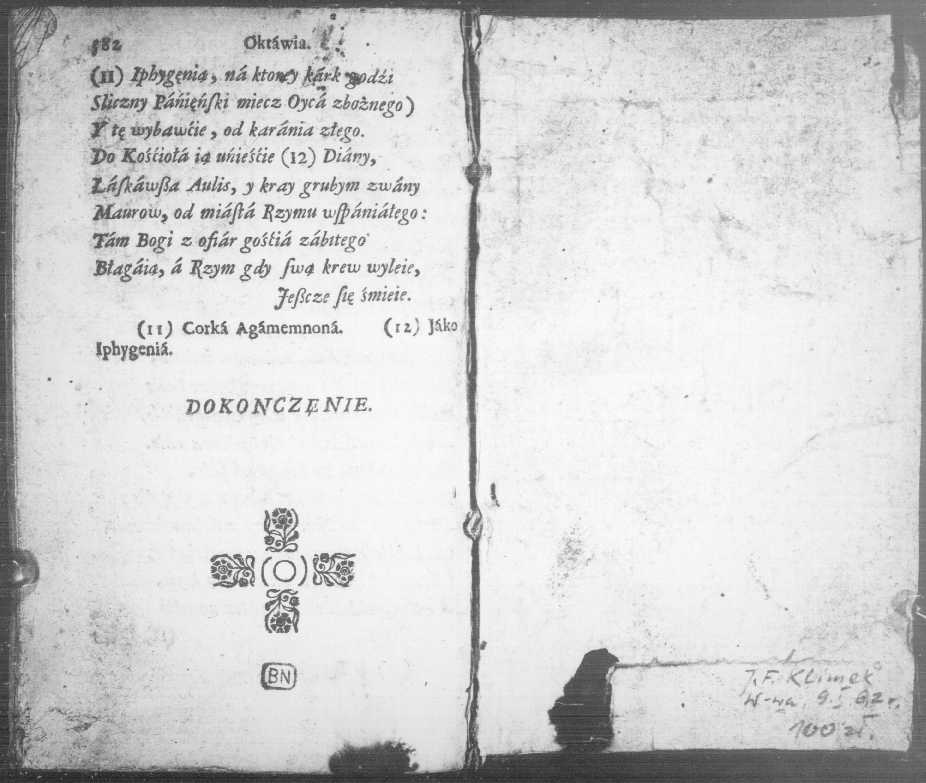 582 Oktáwia.
(11) Iphygęnią, ná ktorey kárk godźi
Sliczny Páńięńſki miecz Oycá zbożnego)
Y tę wybawćie, od karánia złego.
Do Kośćiołá ią uńieśćie (12) Diány,
Łáſkáwßa Aulis, y kray grubym zwány
Maurow, od miáſtá Rzymu wſpániáłego:
Tám Bogi z ofiár gośćiá zábitego
Błagáią, á Rzym gdy ſwą krew wyleie,
Jeßcze ſię śmieie.
(11) Corká Agámemnoná. (12) Jáko
Iphygeniá.
DOKONCZĘNIE.
BN
J.F. Klimek
W-wa, 9.I 62 r.
100 zł.